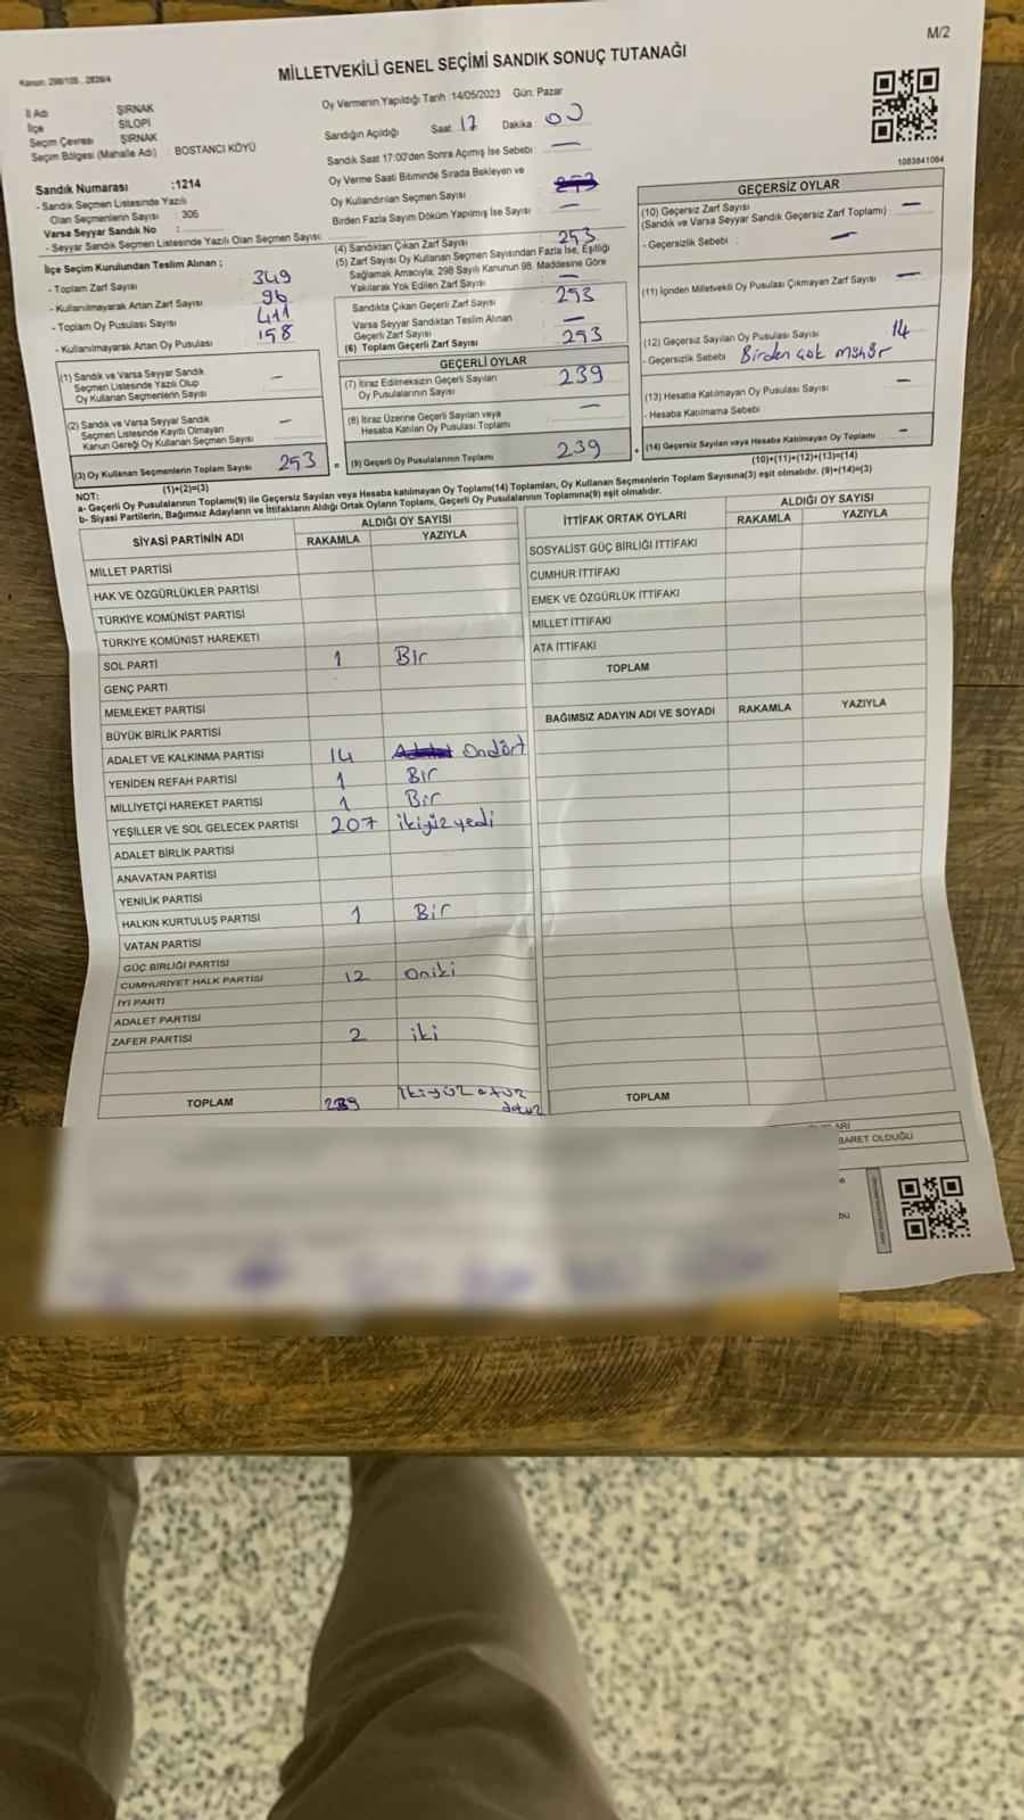 M/2
MİLLETVEKİLİ GENEL SEÇİMİ SANDIK SONUÇ TUTANAĞI
İl Adı ŞIRNAK
İlçe SİLOPİ
Seçim Çevresi ŞIRNAK
Seçim Bölgesi (Mahalle Adı) BOSTANCI KÖYÜ
Sandık Numarası :1214
- Sandık Seçmen Listesinde Yazılı
Olan Seçmenlerin Sayısı : 306
Varsa Seyyar Sandık No :
- Seyyar Sandık Seçmen Listesinde Yazılı Olan Seçmen Sayısı:
İlçe Seçim Kurulundan Teslim Alınan :
- Toplam Zarf Sayısı 349
- Kullanılmayarak Artan Zarf Sayısı 96
- Toplam Oy Pusulası Sayısı 411
- Kullanılmayarak Artan Oy Pusulası 158
(1) Sandık ve Varsa Seyyar Sandık
Seçmen Listesinde Yazılı Olup
Oy Kullanan Seçmenlerin Sayısı —
(2) Sandık ve Varsa Seyyar Sandık
Seçmen Listesinde Kayıtlı Olmayan
Kanun Gereği Oy Kullanan Seçmen Sayısı —
(3) Oy Kullanan Seçmenlerin Toplam Sayısı 253
(1)+(2)=(3)
Oy Vermenin Yapıldığı Tarih :14/05/2023 Gün: Pazar
Sandığın Açıldığı Saat 17 Dakika 00
Sandık Saat 17:00'den Sonra Açılmış İse Sebebi —
Oy Verme Saati Bitiminde Sırada Bekleyen ve
Oy Kullandırılan Seçmen Sayısı
Birden Fazla Sayım Döküm Yapılmış İse Sayısı —
(4) Sandıktan Çıkan Zarf Sayısı 253
(5) Zarf Sayısı Oy Kullanan Seçmen Sayısından Fazla İse, Eşitliği
Sağlamak Amacıyla, 298 Sayılı Kanunun 98. Maddesine Göre
Yakılarak Yok Edilen Zarf Sayısı —
Sandıkta Çıkan Geçerli Zarf Sayısı 253
Varsa Seyyar Sandıktan Teslim Alınan
Geçerli Zarf Sayısı —
(6) Toplam Geçerli Zarf Sayısı 253
GEÇERLİ OYLAR
(7) İtiraz Edilmeksizin Geçerli Sayılan
Oy Pusulalarının Sayısı 239
(8) İtiraz Üzerine Geçerli Sayılan veya
Hesaba Katılan Oy Pusulası Toplamı —
= (9) Geçerli Oy Pusulalarının Toplamı 239
1083841084
GEÇERSİZ OYLAR
(10) Geçersiz Zarf Sayısı
(Sandık ve Varsa Seyyar Sandık Geçersiz Zarf Toplamı) : —
- Geçersizlik Sebebi : —
(11) İçinden Milletvekili Oy Pusulası Çıkmayan Zarf Sayısı —
(12) Geçersiz Sayılan Oy Pusulası Sayısı 14
- Geçersizlik Sebebi Birden çok mühür
(13) Hesaba Katılmayan Oy Pusulası Sayısı —
- Hesaba Katılmama Sebebi
+ (14) Geçersiz Sayılan veya Hesaba Katılmayan Oy Toplamı —
(10)+(11)+(12)+(13)=(14)
NOT:
a- Geçerli Oy Pusulalarının Toplamı(9) ile Geçersiz Sayılan veya Hesaba katılmayan Oy Toplamı(14) Toplamları, Oy Kullanan Seçmenlerin Toplam Sayısına(3) eşit olmalıdır. (9)+(14)=(3)
b- Siyasi Partilerin, Bağımsız Adayların ve İttifakların Aldığı Ortak Oyların Toplamı, Geçerli Oy Pusulalarının Toplamına(9) eşit olmalıdır.
SİYASİ PARTİNİN ADI ALDIĞI OY SAYISI
RAKAMLA YAZIYLA
MİLLET PARTİSİ
HAK VE ÖZGÜRLÜKLER PARTİSİ
TÜRKİYE KOMÜNİST PARTİSİ
TÜRKİYE KOMÜNİST HAREKETİ
SOL PARTİ 1 Bir
GENÇ PARTİ
MEMLEKET PARTİSİ
BÜYÜK BİRLİK PARTİSİ
ADALET VE KALKINMA PARTİSİ 14 Ondört
YENİDEN REFAH PARTİSİ 1 Bir
MİLLİYETÇİ HAREKET PARTİSİ 1 Bir
YEŞİLLER VE SOL GELECEK PARTİSİ 207 ikiyüz yedi
ADALET BİRLİK PARTİSİ
ANAVATAN PARTİSİ
YENİLİK PARTİSİ
HALKIN KURTULUŞ PARTİSİ 1 Bir
VATAN PARTİSİ
GÜÇ BİRLİĞİ PARTİSİ
CUMHURİYET HALK PARTİSİ 12 Oniki
İYİ PARTİ
ADALET PARTİSİ
ZAFER PARTİSİ 2 iki
TOPLAM 239 ikiyüz otuz
dokuz
İTTİFAK ORTAK OYLARI ALDIĞI OY SAYISI
RAKAMLA YAZIYLA
SOSYALİST GÜÇ BİRLİĞİ İTTİFAKI
CUMHUR İTTİFAKI
EMEK VE ÖZGÜRLÜK İTTİFAKI
MİLLET İTTİFAKI
ATA İTTİFAKI
TOPLAM
BAĞIMSIZ ADAYIN ADI VE SOYADI RAKAMLA YAZIYLA
TOPLAM
BARET OLDUĞU